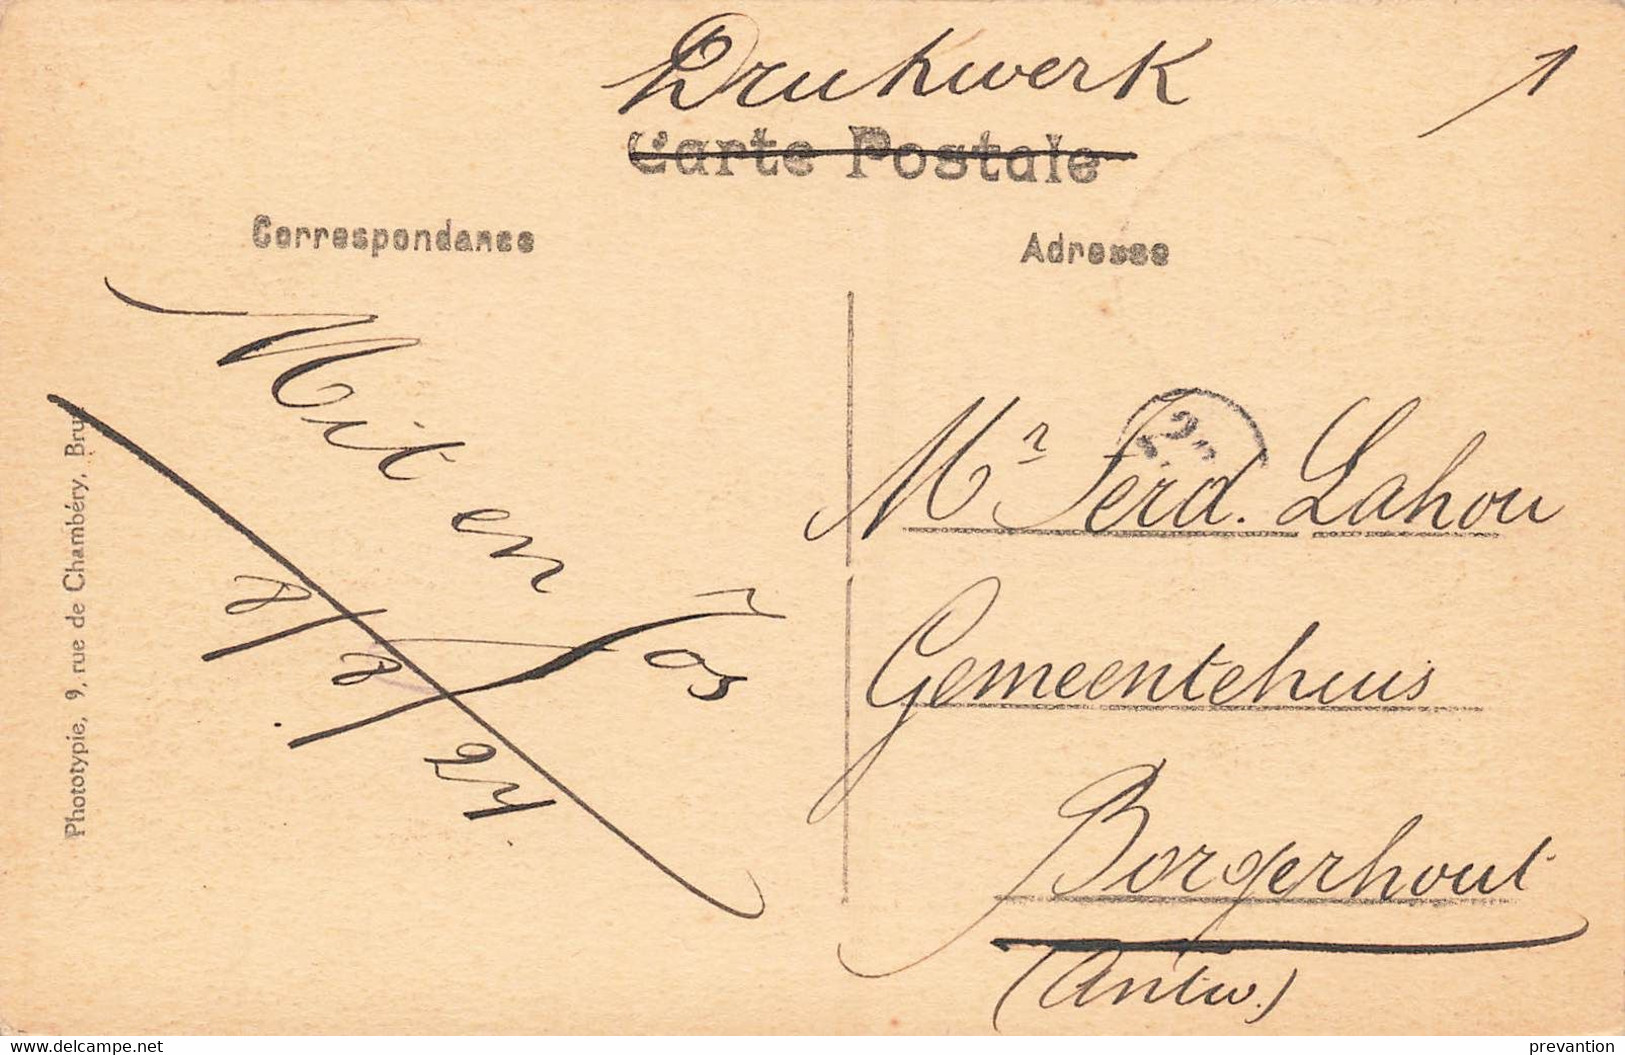 Drukwerk
Carte Postale
Correspondance
Adresse
Mit en Jos
8/8/24
Mr Ferd. Lahou
Gemeentehuis
Borgerhout
(Antw.)
Phototypie, 9, rue de Chambéry, Brux
www.delcampe.net
prevantion